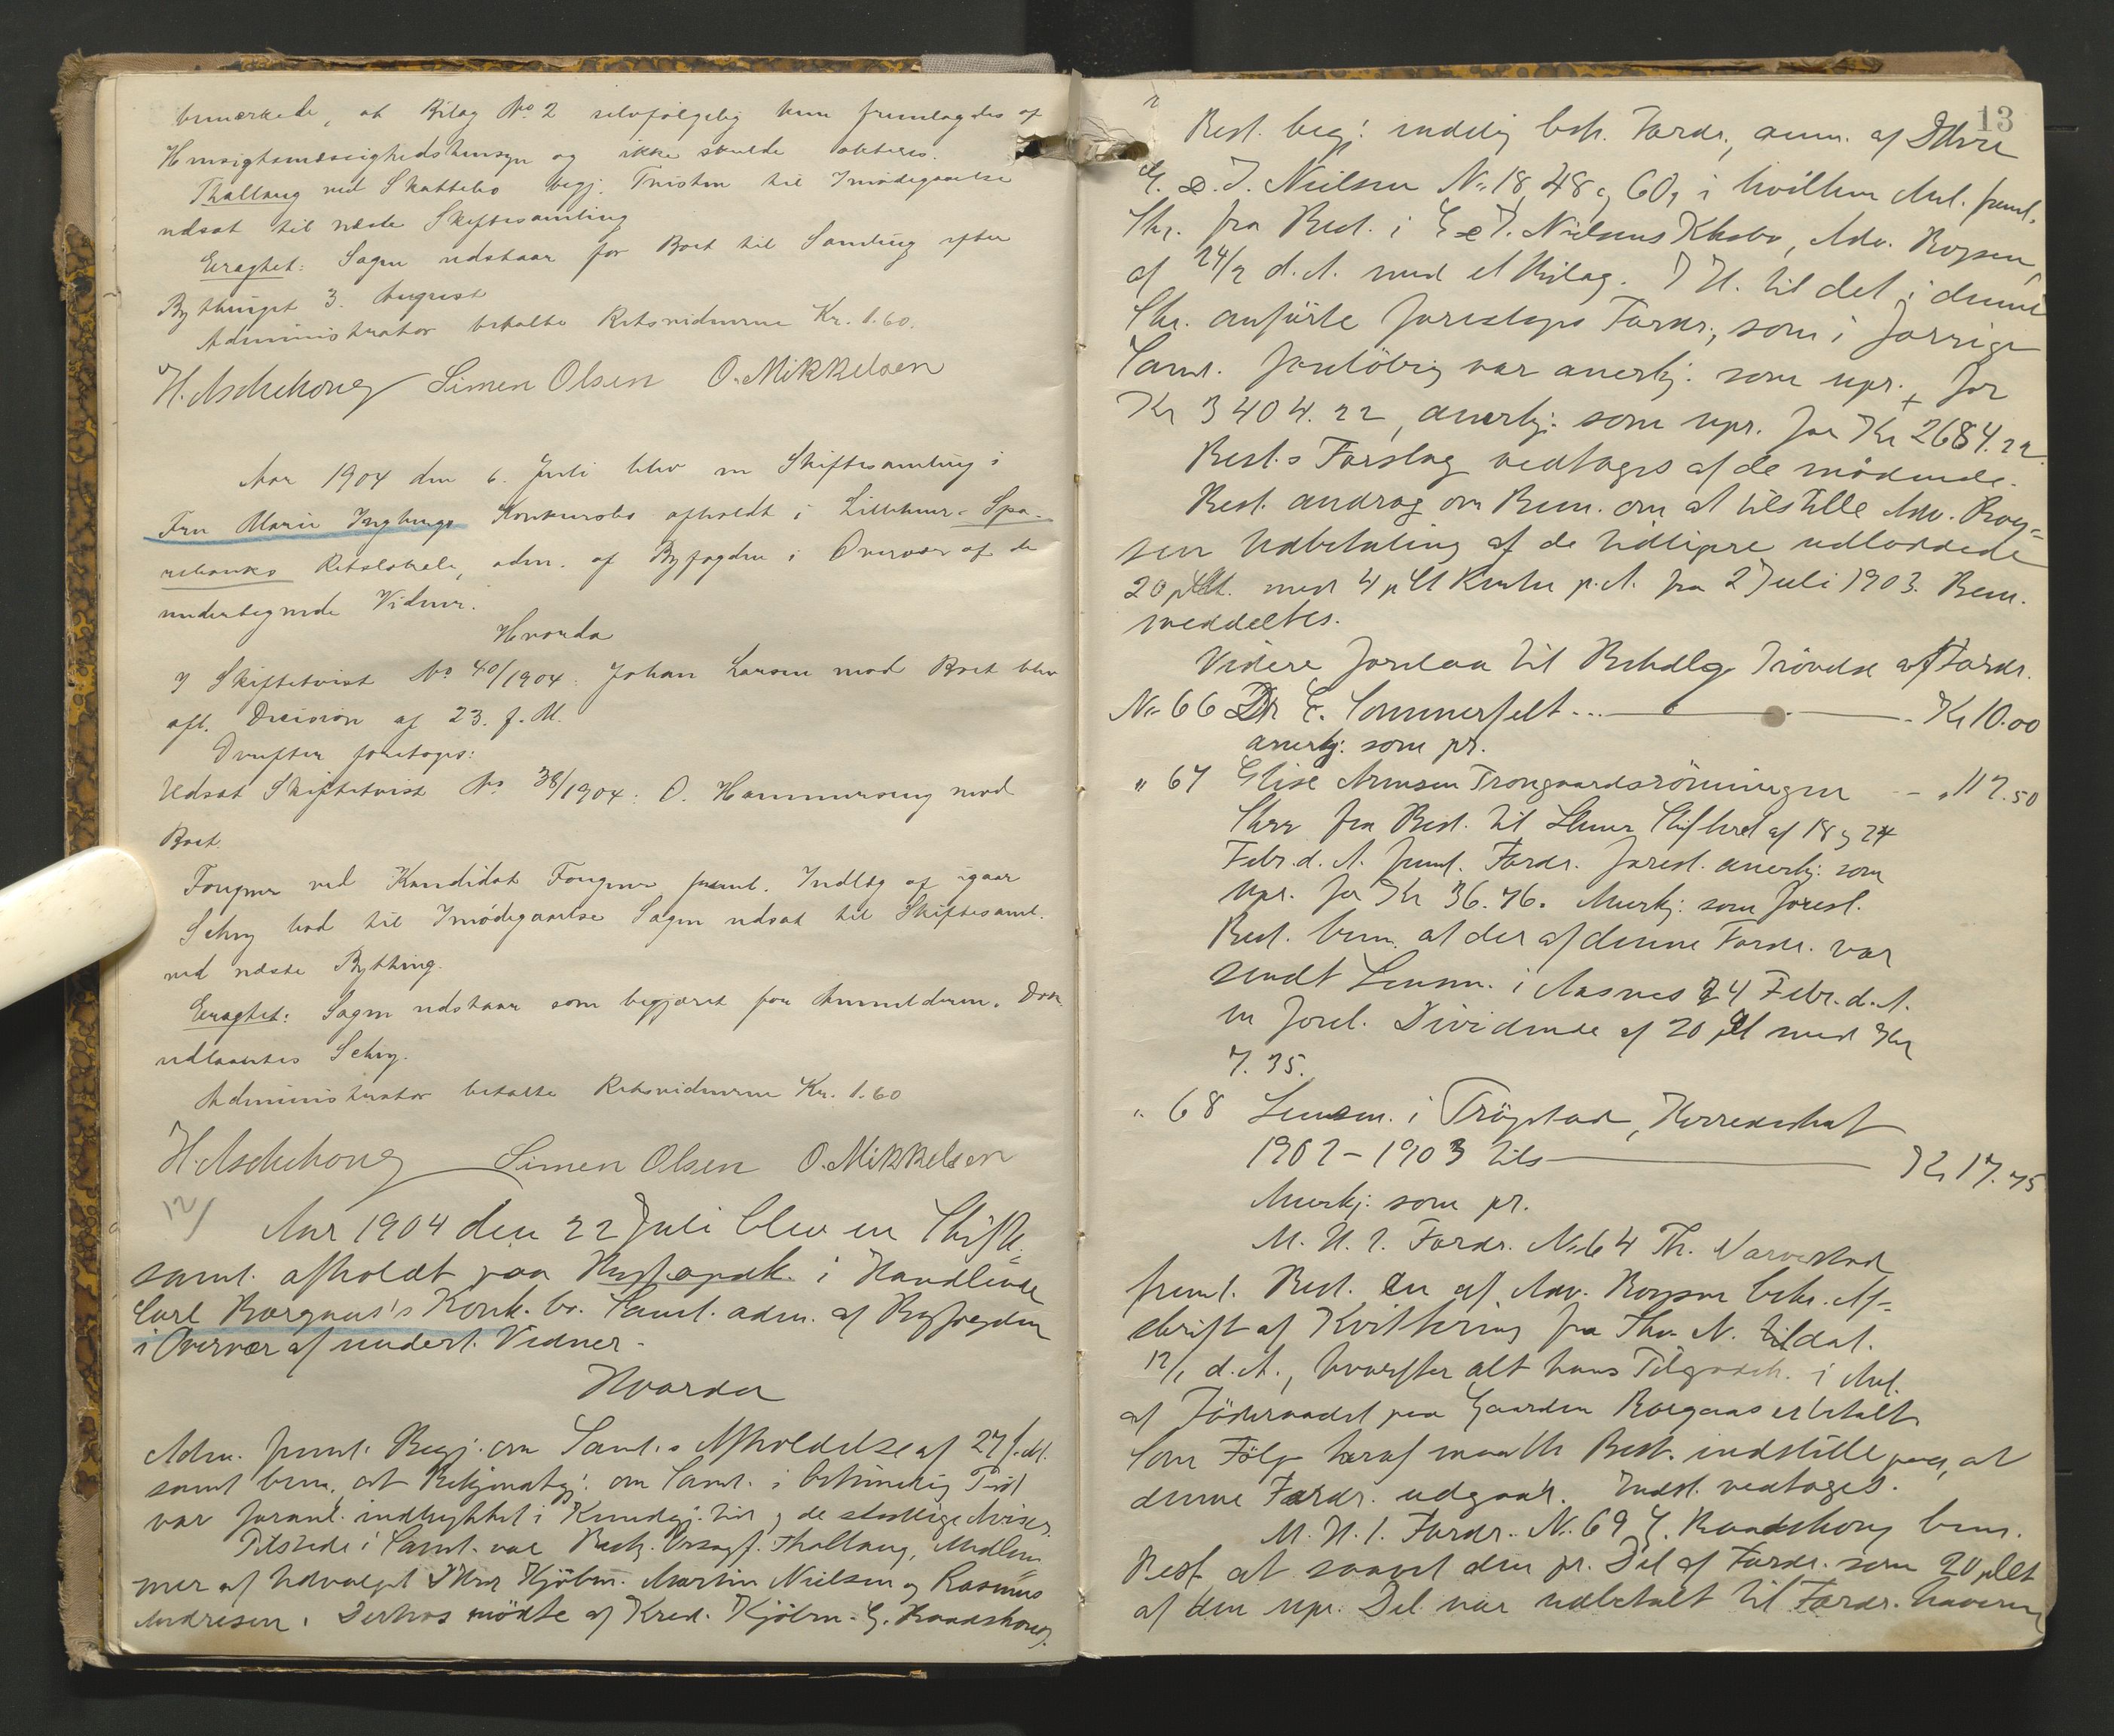 bemærkede, at Bilag No. 2 selvfølgelig kun fremlagdes af
Hensigtsmæssighedshensyn og ikke skulde akteres.
Thallaug ved Skattebo begj. Fristen til Imødegaaelse
udsat til næste Skiftesamling
Eragtet: Sagen udstaar for Boet til Samling efter
Bythinget 3. August
Administrator betalte Retsvidnerne Kr. 1.60.
H. Aschehoug Simen Olsen O. Mikkelsen
Aar 1904 den 6. Juli blev en Skiftesamling i
Fru Marie Ingbergs Konkursbo afholdt i Lillehmr. Spa-
rebanks Retslokale, adm. af Byfogden i Overvær af de
undertegnede Vidner.
Hvorda
I Skiftetvist No 40/1904: Johan Larsen mod Boet blev
afs. Decision af 23. f. M.
Derefter foretoges:
Udsat Skiftetvist No. 38/1904: O. Hammerseng mod
Boet.
Fougner ved Kandidat Fougner freml. Indlæg af igaar
Schey bad til Imødegaaelse Sagen udsat til Skiftesaml.
ved næste Bything.
Eragtet: Sagen udstaar som begjæret for Anmelderen. Dok.
udlaantes Schey.
Administrator betalte Retsvidnerne Kr. 1.60
H. Aschehoug Simen Olsen O. Mikkelsen
12/
Aar 1904 den 22 Juli blev en Skifte-
saml. afholdt paa Byf. i Handlende
Carl Borgaas's Konk. bo. Saml. adm. af Byfogden
i Overvær af undert. Vidner.
Hvorda
Adm. freml. Begj. om Saml.s Afholdelse af 27 f.
samt bem. at Bekjendtgj. om Saml. i betimelig Tid
var foranl. indrykket i Kundgj. tid. og de stedlige Aviser.
Tilstede i Saml. var Best. Thallaug, Medlem
mer af Udvalget DHrr Kjøbm. Martin Nielsen og Rasmus
Andresen. Derhos mødte af Kred. Kjøbm. G. Raadshoug.
13
Best. begj. endelig beh. Fordr., anm. af DHrr
G. & I. Nielsen No 18, 48 og 60, i hvilken Anl. freml.
Skr. fra Best. i G & I. Nielsens Kksbo, Adv. Boysen,
af 24/2 d. A. med et Bilag. I H. til det i denne
Skr. anførte foresloges Fordr., som i forrige
Saml. foreløbig var anerkj. som upr. for
Kr 3404.22, anerkj. som upr. for Kr 2684.22.
Best.s Forslag vedtoges af de mødende.
Best. androg om Bem. om at tilstille Adv. Boy-
sen Udbetaling af de tidligere udloddede
20 pCt. med 4 pCt Rente p. A. fra 2 Juli 1903. Bem.
meddeeltes.
Videre forelaa til Behdlg Prøvelse af Fordr.
No 66 Dr E. Sommerfelt... Kr 10.00
anerkj. som pr.
" 67 Elise Arnesen Trongaardsrønningen - " 112.50
Skrr fra Best. til Skifteret af 18 og 24
Febr. d. A. freml. Fordr. forest. anerkj. som
upr. for Kr 36.76. Anerkj. som forest.
Best. bem. at der af denne Fordr. var
sendt Lensm. i Aasnes 24 Febr. d. A.
en forel. Dividende af 20 pCt med Kr
7.35.
" 68 Lensm. i Trøgstad, Herredskat
1902 - 1903 tils Kr 17.75
Anerkj. som pr.
M. H. t. Fordr. No 64 Th. Narverud
freml. Best. en af Adv. Boysen bekr. Af-
skrift af Kvittering fra Thv. N. dat.
12/1 d. A., hvorefter alt hans Tilgodeh. i Anl.
af Føderaadet paa Gaarden Borgaas er betalt
Som Følge heraf maatte Best. indstille paa, at
denne Fordr. udgaar. Indst. vedtoges.
M. H. t. Fordr. No 69 G. Raadshoug bem.
Best. at saavel den pr. Del af Fordr. som 20 pCt
af den upr. Del var udbetalt til Fordr. haveren